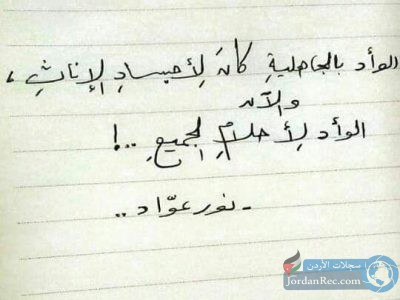 الوأد بالجاهلية كانَ لِأجسادِ الإناثِ ،
والآن
الوأد لِأحلامِ الجميعِ ..!
- نور عوّاد ..
سجلات الأردن
JordanRec.com